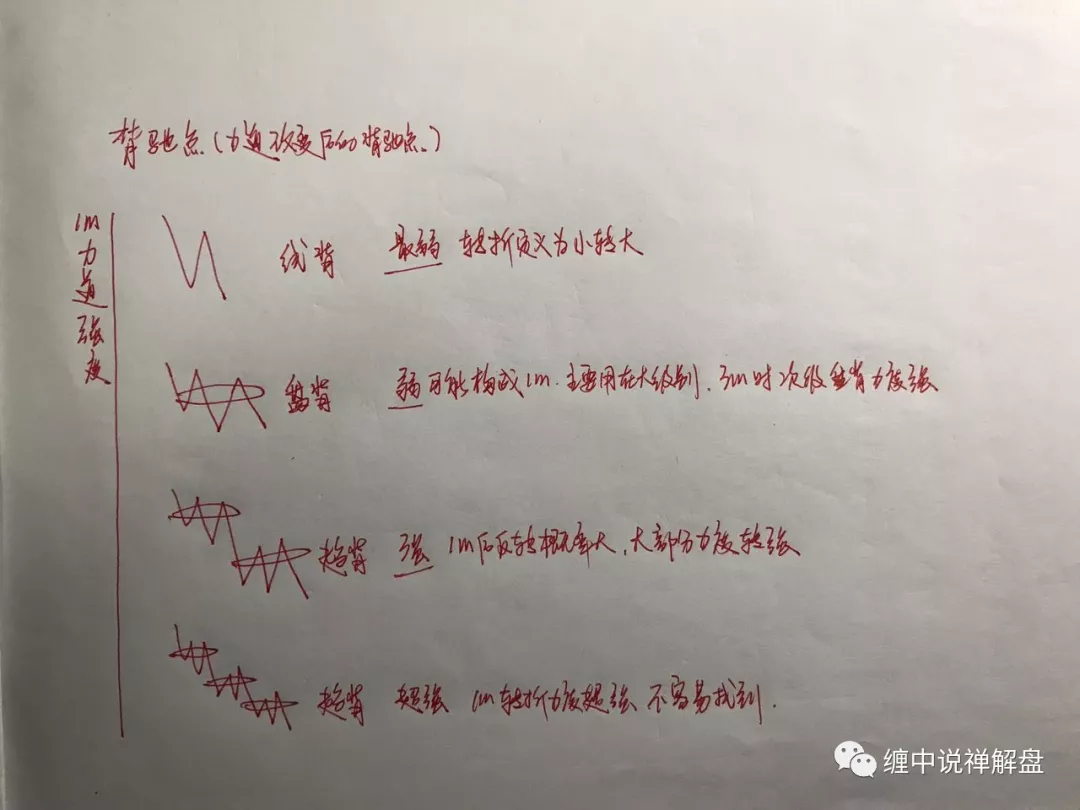 背驰点(力道改变后的背驰点.)
1M力道强度
线背 最弱 转折定义为小转大
盘背 弱 可能构成1M. 主要用在大级别. 3m时次级 背力度强
趋背 强 1M后反转概率大, 大部分力度较强
趋背 超强 1M转折力度超强 不容易找到.
缠中说禅解盘